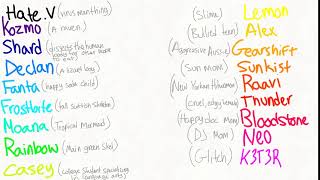 Hate.V (virus manthing)
Kozmo (A raven)
Shard (disects the human body for other people to eat)
Declan (A lizard boy)
Fanta (happy soda child)
Frostbite (fall
Moana (Tropical Mermaid)
Rainbow (Main green Slat)
Casey (college student specializing in
(Slime) Lemon
(Bullied teen) Alex
(Aggressive Aussie) Gearshift
(Sun mom) Sunkist
(New Yorkan
Raavi
(cruel, edgy female) Thunder
(Happy doc mom) Bloodstone
(DJ Mom) Neo
(Glitch) K3T3R